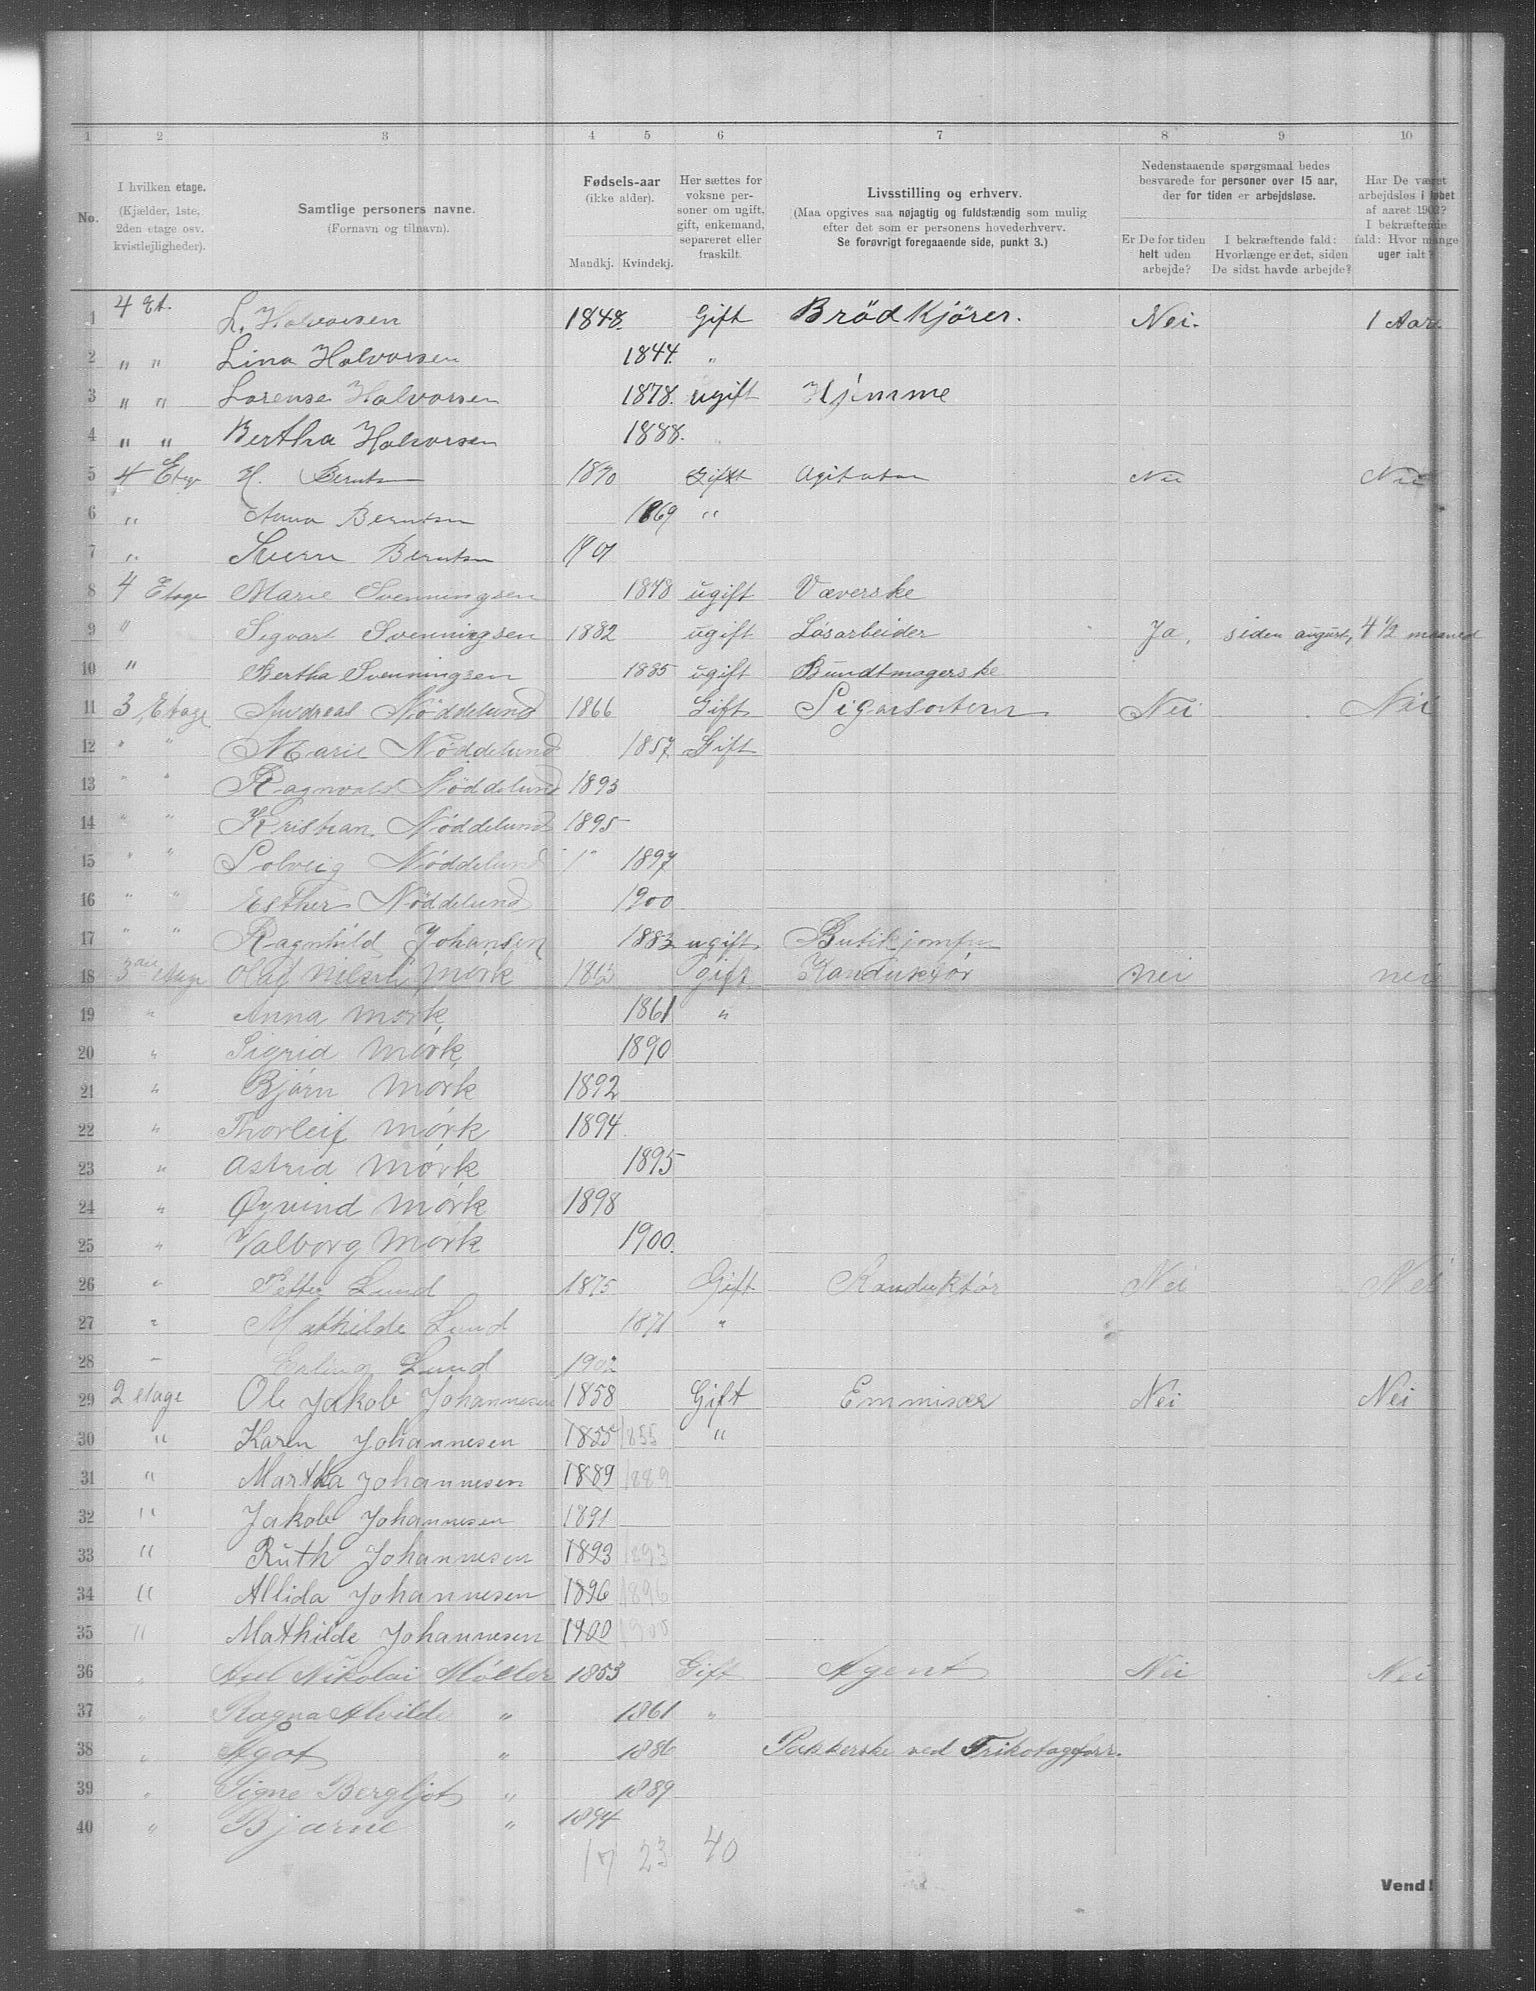 1 2 3 4 5 6 7 8 9 10
No.
I hvilken etage.
(Kjælder, 1ste,
2den etage osv.
kvistlejligheder).
Samtlige personers navne.
(Fornavn og tilnavn).
Fødsels-aar
(ikke alder).
Mandkj. Kvindekj.
Her sættes for
voksne per-
soner om ugift,
gift, enkemand,
separeret eller
fraskilt.
Livsstilling og erhverv.
(Maa opgives saa nøjagtig og fuldstændig som mulig
efter det som er personens hovederhverv.
Se forøvrigt foregaaende side, punkt 3.)
Nedenstaaende spørgsmaal bedes
besvarede for personer over 15 aar,
der for tiden er arbejdsløse.
Er De for tiden
helt uden
arbejde?
I bekræftende fald:
Hvorlænge er det, siden
De sidst havde arbejde?
Har De været
arbejdsløs i løbet
af aaret 1902?
I bekræftende
fald: Hvor mange
uger ialt?
1 4 Et. L. Halvorsen 1848. Gift Brödkjörer. Nei. 1 Aar
2 " " Lina Halvorsen 1844. "
3 " " Lorense Halvorsen 1878. ugift Hjemme
4 " " Bertha Halvorsen 1888. "
5 4 Etage H. Berntsen 1870 Gift Agitator Nei Nei
6 " Anna Berntsen 1869 "
7 " Sverre Berntsen 1901
8 4 Etage Marie Svenningsen 1848 ugift Væverske
9 " Sigvart Svenningsen 1882 ugift Løsarbeider Ja, siden august, 4 1/2 maaned
10 " Bertha Svenningsen 1885 ugift Bundtmagerske
11 3 Etage Andreas Nöddelund 1866 Gift Sigarsorterer Nei Nei
12 " " Marie Nöddelund 1857 Gift
13 " " Ragnvald Nöddelund 1893
14 " " Kristian Nöddelund 1895
15 " " Solveig Nöddelund 1" 1897
16 " " Esther Nöddelund 1900
17 " " Ragnhild Johansen 1883 ugift Butikjomfru
18 3die etage Olaf Nilsen Mørk 1863 gift Konduktør nei nei
19 " Anna Mørk 1861 "
20 " Sigrid Mørk 1890
21 " Bjørn Mørk 1892
22 " Thorleif Mørk 1894
23 " Astrid Mørk 1895
24 " Øyvind Mørk 1898
25 " Valborg Mørk 1900.
26 " Petter Lund 1875 Gift Konduktør Nei Nei
27 " Mathilde Lund 1871 "
28 " Erling Lund 1902
29 2 etage Ole Jakob Johannesen 1858 Gift Emmisær Nei Nei
30 " Karen Johannesen 1855 1855 "
31 " Martha Johannesen 1889 1889
32 " Jakob Johannesen 1891
33 " Ruth Johannesen 1893 1893
34 " Allida Johannesen 1896 1896
35 " Mathilde Johannesen 1900 1900
36 " Axel Nikolai Møller 1853 Gift Agent Nei Nei
37 " Ragna Alvilde " 1861 "
38 " Agot " 1886 Pakkerske ved Trikotagforr.
39 " Signe Bergljot " 1889
40 " Bjarne " 1894
17 23 40
Vend!